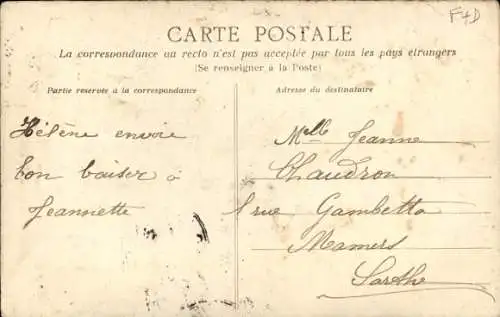 F4D
CARTE POSTALE
La correspondance au recto n'est pas acceptée par tous les pays étrangers
(Se renseigner à la Poste)
Partie réservée à la correspondance
Adresse du destinataire
Hélène envoie
bon baiser à
Jeannette
Melle Jeanne
Chaudron
1 rue Gambetta
Mamers
Sarthe